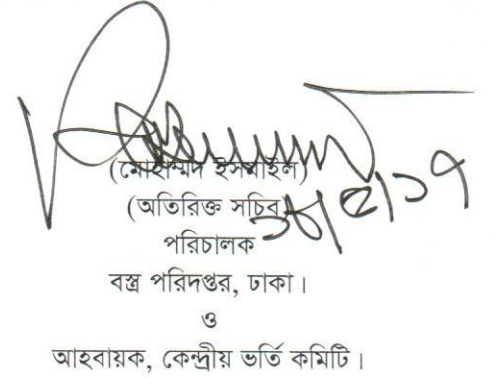 (মোহাম্মদ ইসমাইল)
(অতিরিক্ত সচিব)
পরিচালক
বস্ত্র পরিদপ্তর, ঢাকা।
ও
আহবায়ক, কেন্দ্রীয় ভর্তি কমিটি।